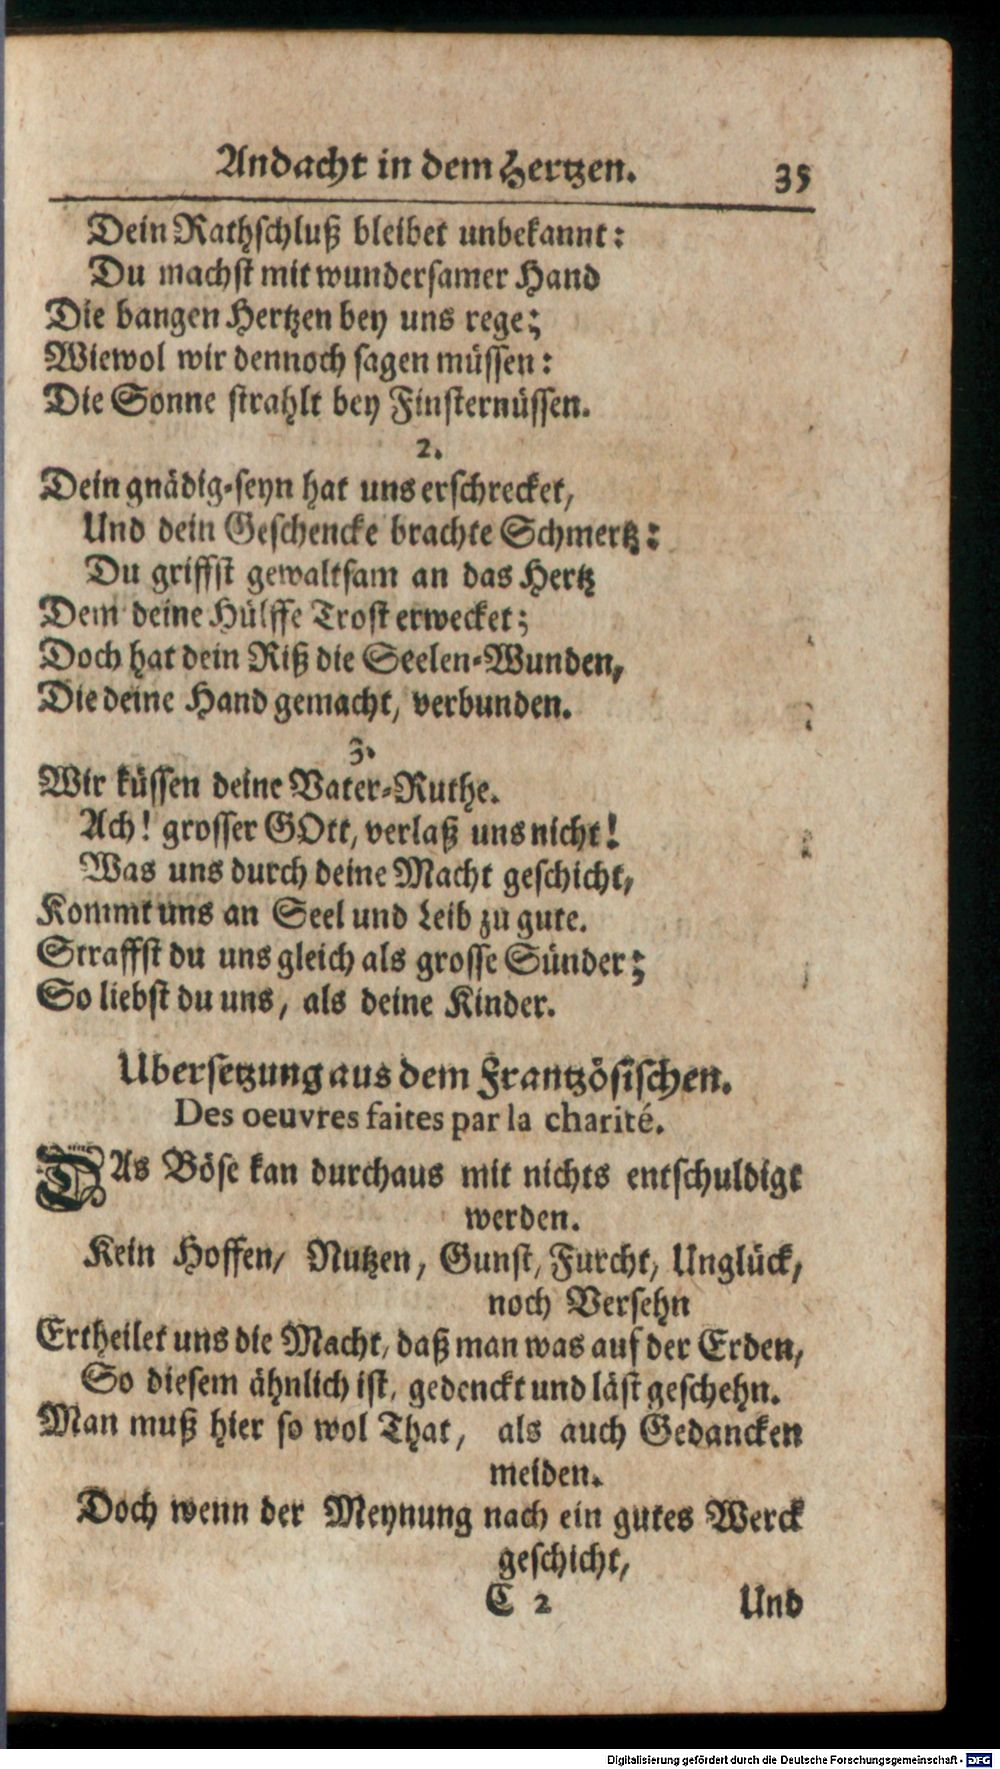 Andacht in dem Hertzen. 35
Dein Rathschluß bleibet unbekannt:
Du machst mit wundersamer Hand
Die bangen Hertzen bey uns rege;
Wiewol wir dennoch sagen müssen:
Die Sonne strahlt bey Finsternüssen.
2.
Dein gnädig-seyn hat uns erschrecket,
Und dein Geschencke brachte Schmertz:
Du griffst gewaltsam an das Hertz
Dem deine Hülffe Trost erwecket;
Doch hat dein Riß die Seelen-Wunden,
Die deine Hand gemacht, verbunden.
3.
Wir küssen deine Vater-Ruthe.
Ach! grosser GOtt, verlaß uns nicht!
Was uns durch deine Macht geschicht,
Kommt uns an Seel und Leib zu gute.
Straffst du uns gleich als grosse Sünder;
So liebst du uns, als deine Kinder.
Ubersetzung aus dem Frantzösischen.
Des oeuvres faites par la charité.
DAs Böse kan durchaus mit nichts entschuldigt
werden.
Kein Hoffen/ Nutzen, Gunst, Furcht, Unglück,
noch Versehn
Ertheilet uns die Macht, daß man was auf der Erden,
So diesem ähnlich ist, gedenckt und läst geschehn.
Man muß hier so wol That, als auch Gedancken
meiden.
Doch wenn der Meynung nach ein gutes Werck
geschicht,
C 2 Und
Digitalisierung gefördert durch die Deutsche Forschungsgemeinschaft - DFG